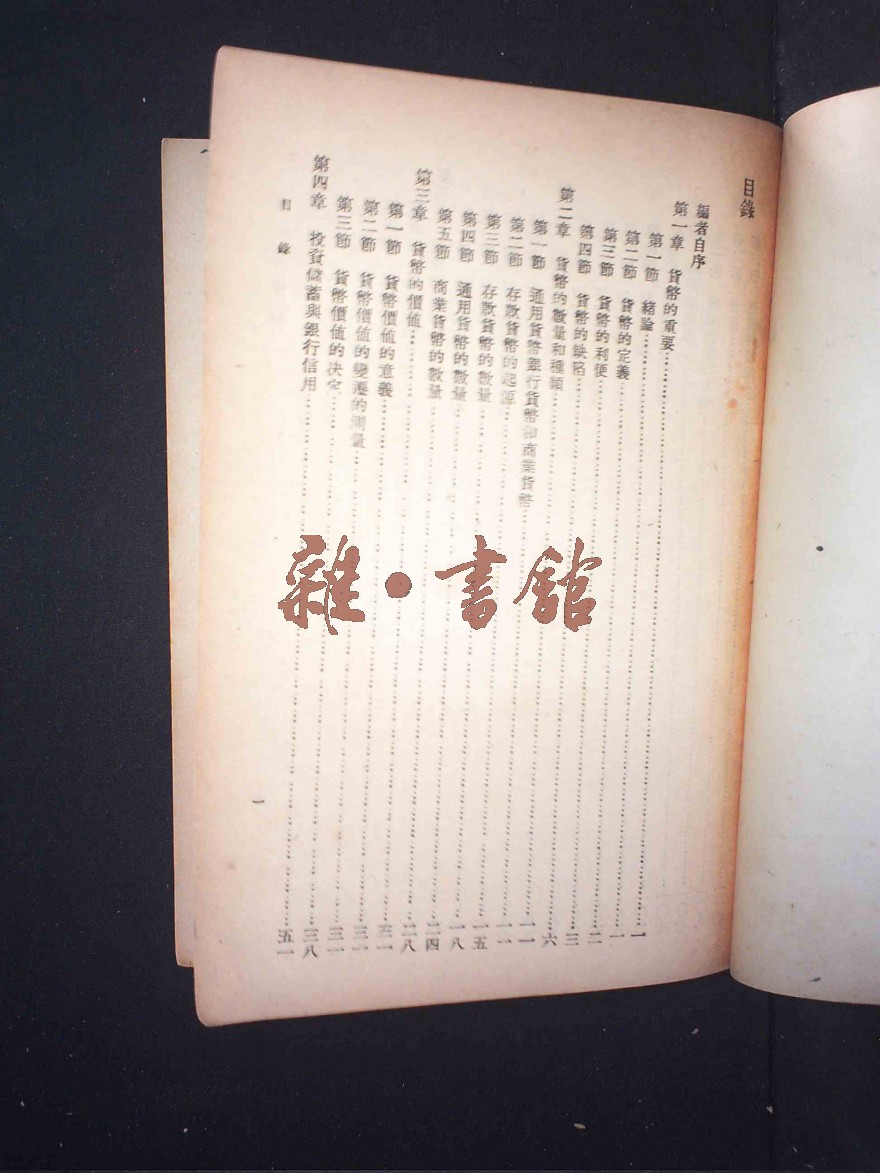 目錄
編者自序
第一章 貨幣的重要……一
第一節 緒論……一
第二節 貨幣的定義……二
第三節 貨幣的利便……三
第四節 貨幣的缺陷……六
第二章 貨幣的數量和種類……一一
第一節 通用貨幣銀行貨幣和商業貨幣……一一
第二節 存款貨幣的起源……一五
第三節 存款貨幣的數量……一八
第四節 通用貨幣的數量……二四
第五節 商業貨幣的數量……二八
第三章 貨幣的價值……三一
第一節 貨幣價值的意義……三一
第二節 貨幣價值的變遷的測量……三一
第三節 貨幣價值的決定……三八
第四章 投資儲蓄與銀行信用……五一
目錄
一
雜•書館